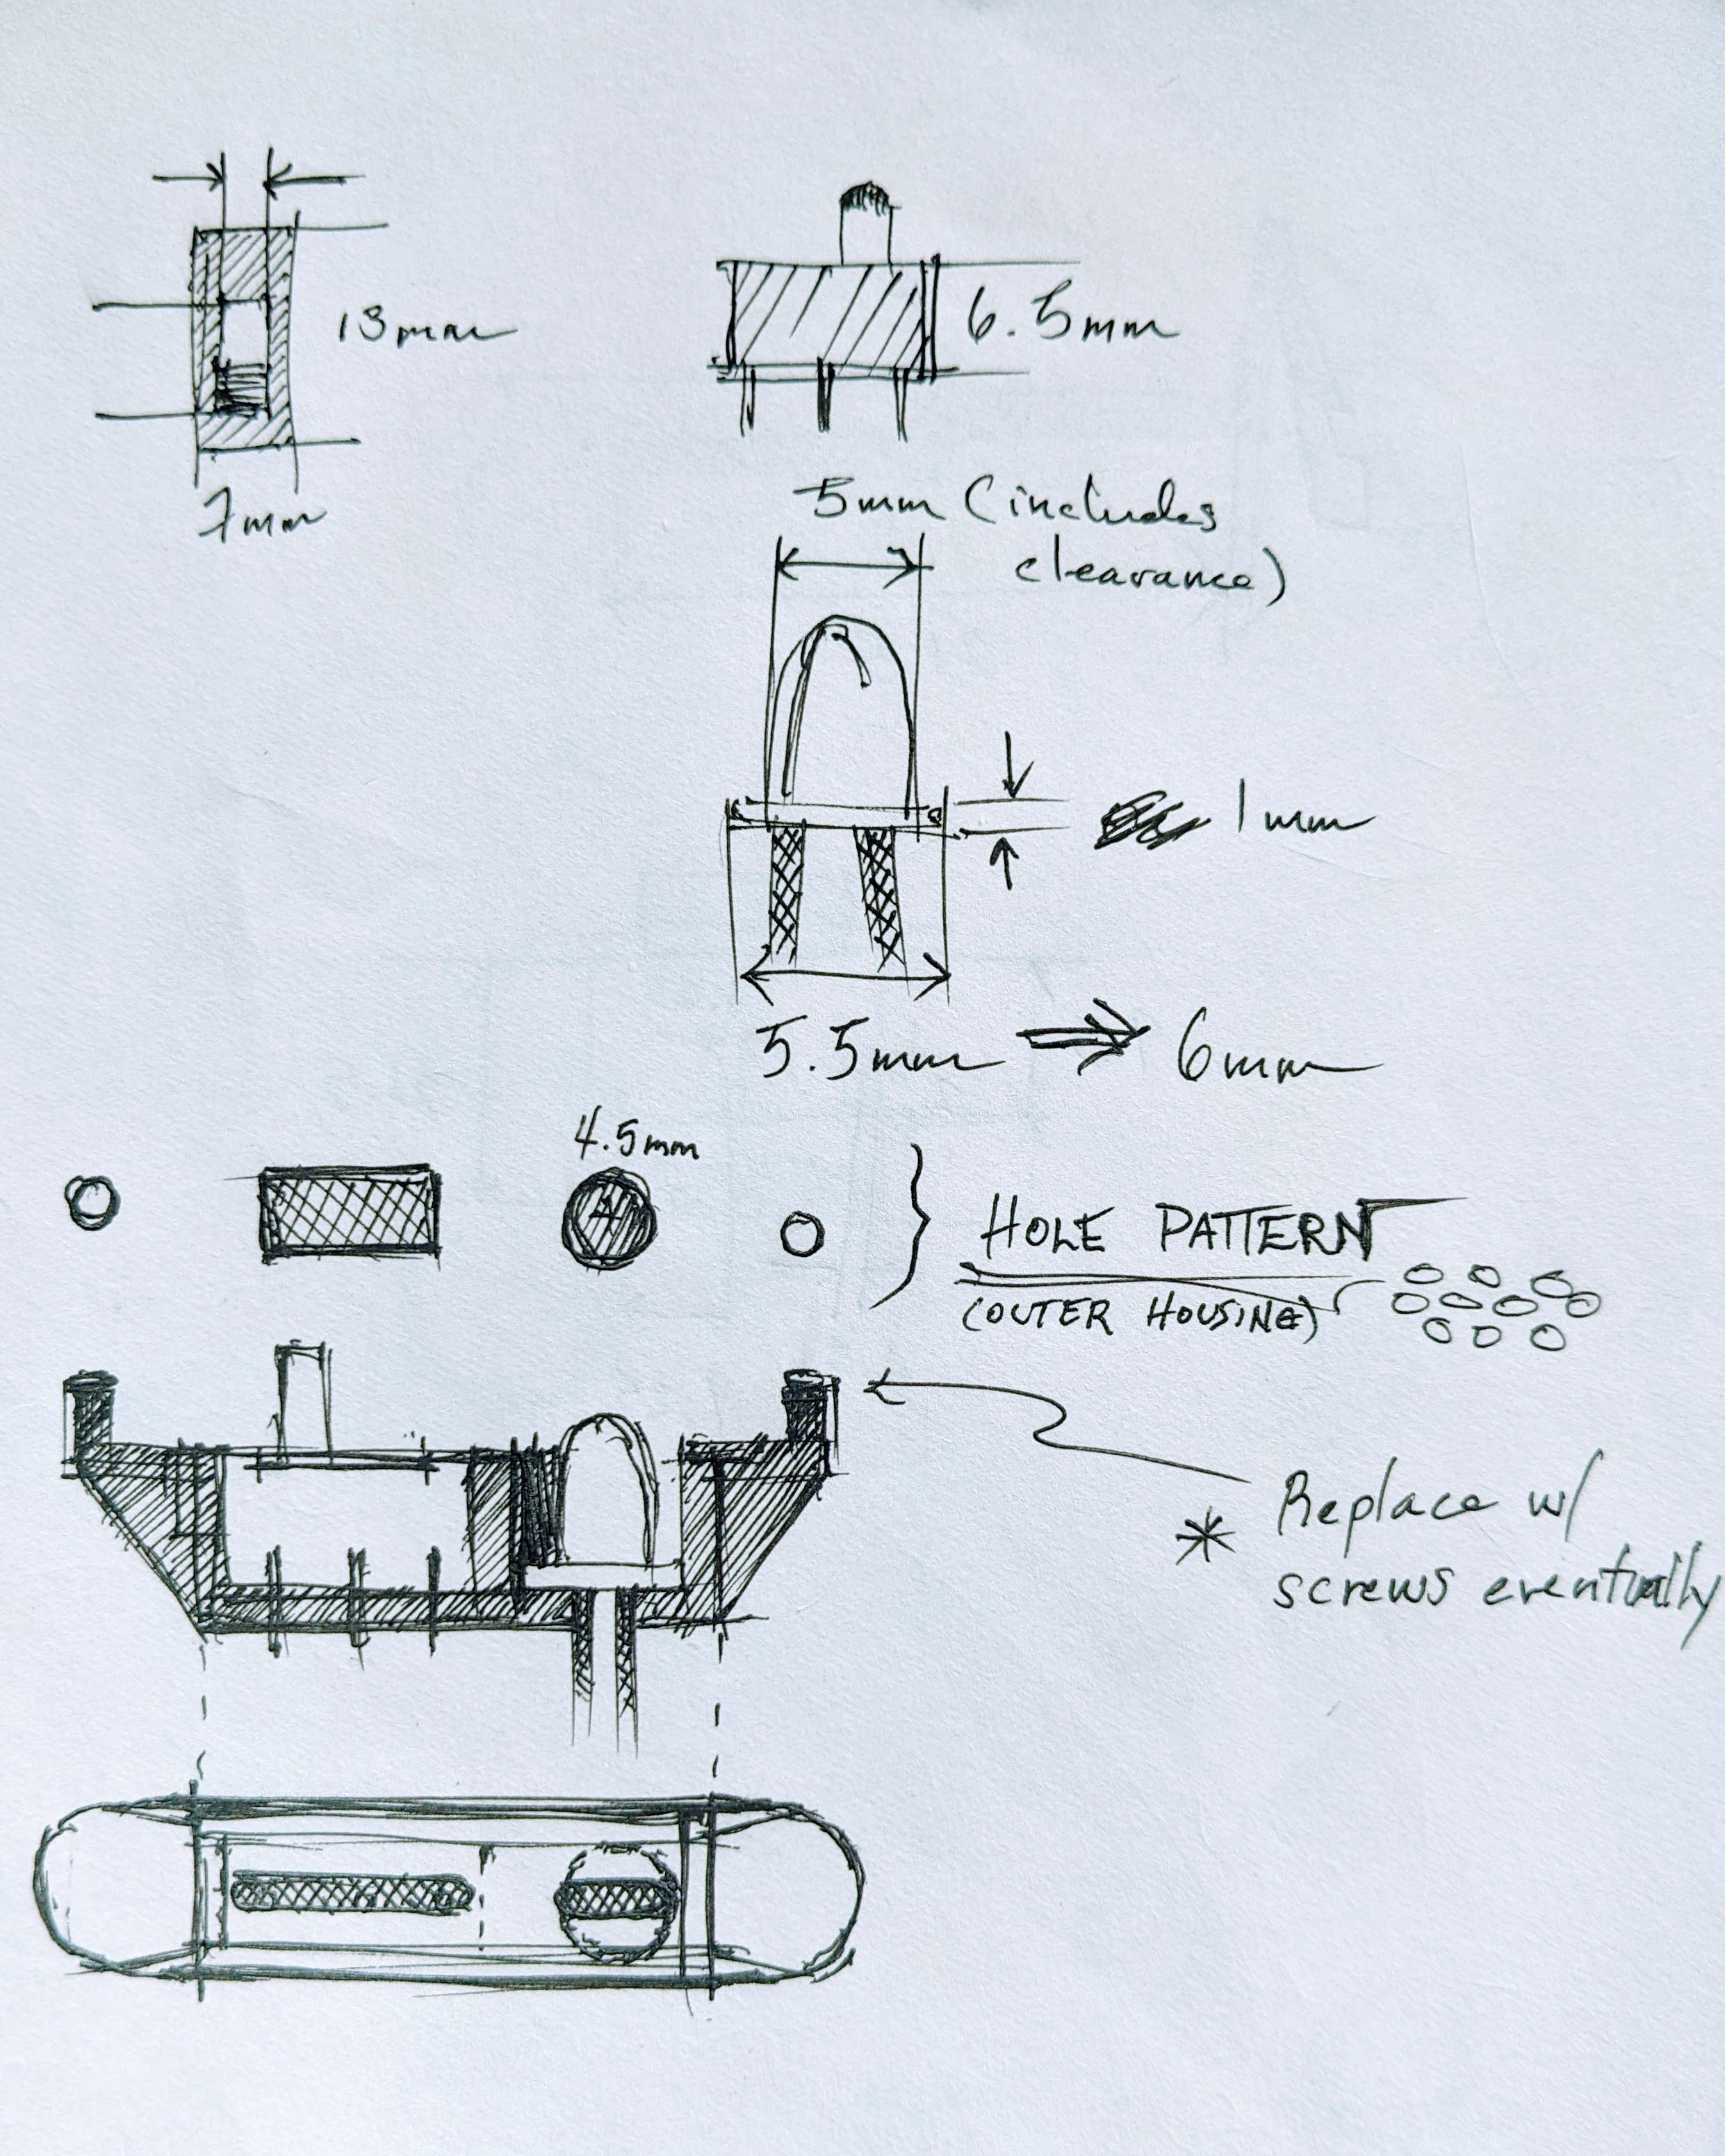 13mm
6.5mm
7mm
5mm (includes
clearance)
1mm
5.5mm ⇒ 6mm
4.5mm
HOLE PATTERN
(OUTER HOUSING)
* Replace w/
screws eventually